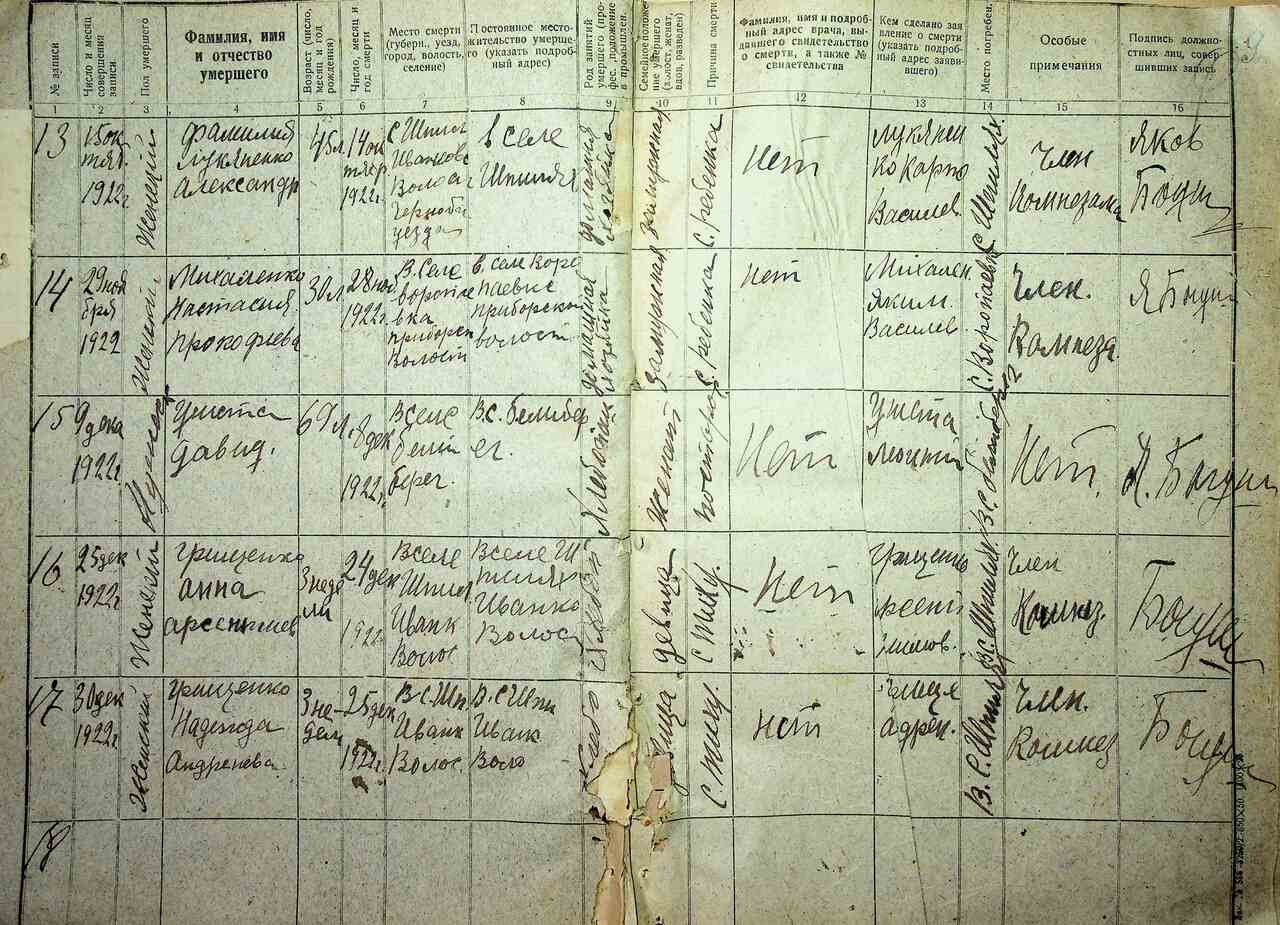 № записи
Число и месяц совершения записи
Пол умершего
Фамилия, имя
и отчество
умершего
Возраст (число, месяц и год рождения)
Число, месяц и год смерти
Место смерти
(губерн., уезд,
город, волость,
селение)
Постоянное место-
жительство умерше-
го (указать подроб-
ный адрес)
Род занятий умершего (профес., положение в промышлен.
Семейное положение умершего (холост, женат, вдов, разведен)
Причина смерти
Фамилия, имя и подроб-
ный адрес врача, вы-
давшего свидетельство
о смерти, а также №
свидетельства
Кем сделано зая
вление о смерти
(указать подроб-
ный адрес заяви-
вшего)
Место погребен.
Особые
примечания
Подпись должно-
стных лиц, совер-
шивших запись
1 2 3 4 5 6 7 8 9 10 11 12 13 14 15 16
13
15 ок
тяб.
1912 г
Женский
Фамилия
Лукяненко
Александр
45 л
14 ок
тябр.
1922 г.
с Шпил
Иванков
Волос
Черноб
уезда
в селе
Шпилях
домашняя
хозяйка
замужняя
с. ребенка
нет
Лукянен
ко Карпо
Василев.
с Шпилях
Член
Комнезама
Яков
14
29 ноя
бря
1922
Женский
Михаленко
Настасия
Прокофиева
30 л
28 ноя
1922 г.
В. Селе
воропае
вка
приборск
волост
в. селе Воро
паевке
приборско
волост
домашняя
хозяйка
замужняя
с. ребенка
нет
Михален.
Яким.
Василев.
с. Воропаевке
Член.
Комнеза
15
9 дека
1922 г.
Мужской
Давид.
69 л.
8 дек
1922 г.
В селе
берег.
В. с. белибер
ег.
Хлебопаш
Женат
Нет
Нет.
16
25 дек
1922 г
Женский
Грищенко
анна
арсентиев
3 неде
ли
24 дек
1922 г.
В селе
Шпил
Иванк
Волос
В селе Ш
пилях
Иванко
Волос
девица
Нет
Грищенко
Член
Комнез.
17
30 дек
1922 г.
Женский
Грищенко
Надежда
Андреиева.
3 не-
дели
25 дек
1922 г.
В. с. Шп
Иванк
Волос.
В. с Шпи
Иванк
Воло
Хлебо
девица
нет
Грище
адрей.
В. С. Шпилях
Член.
Комнез
18